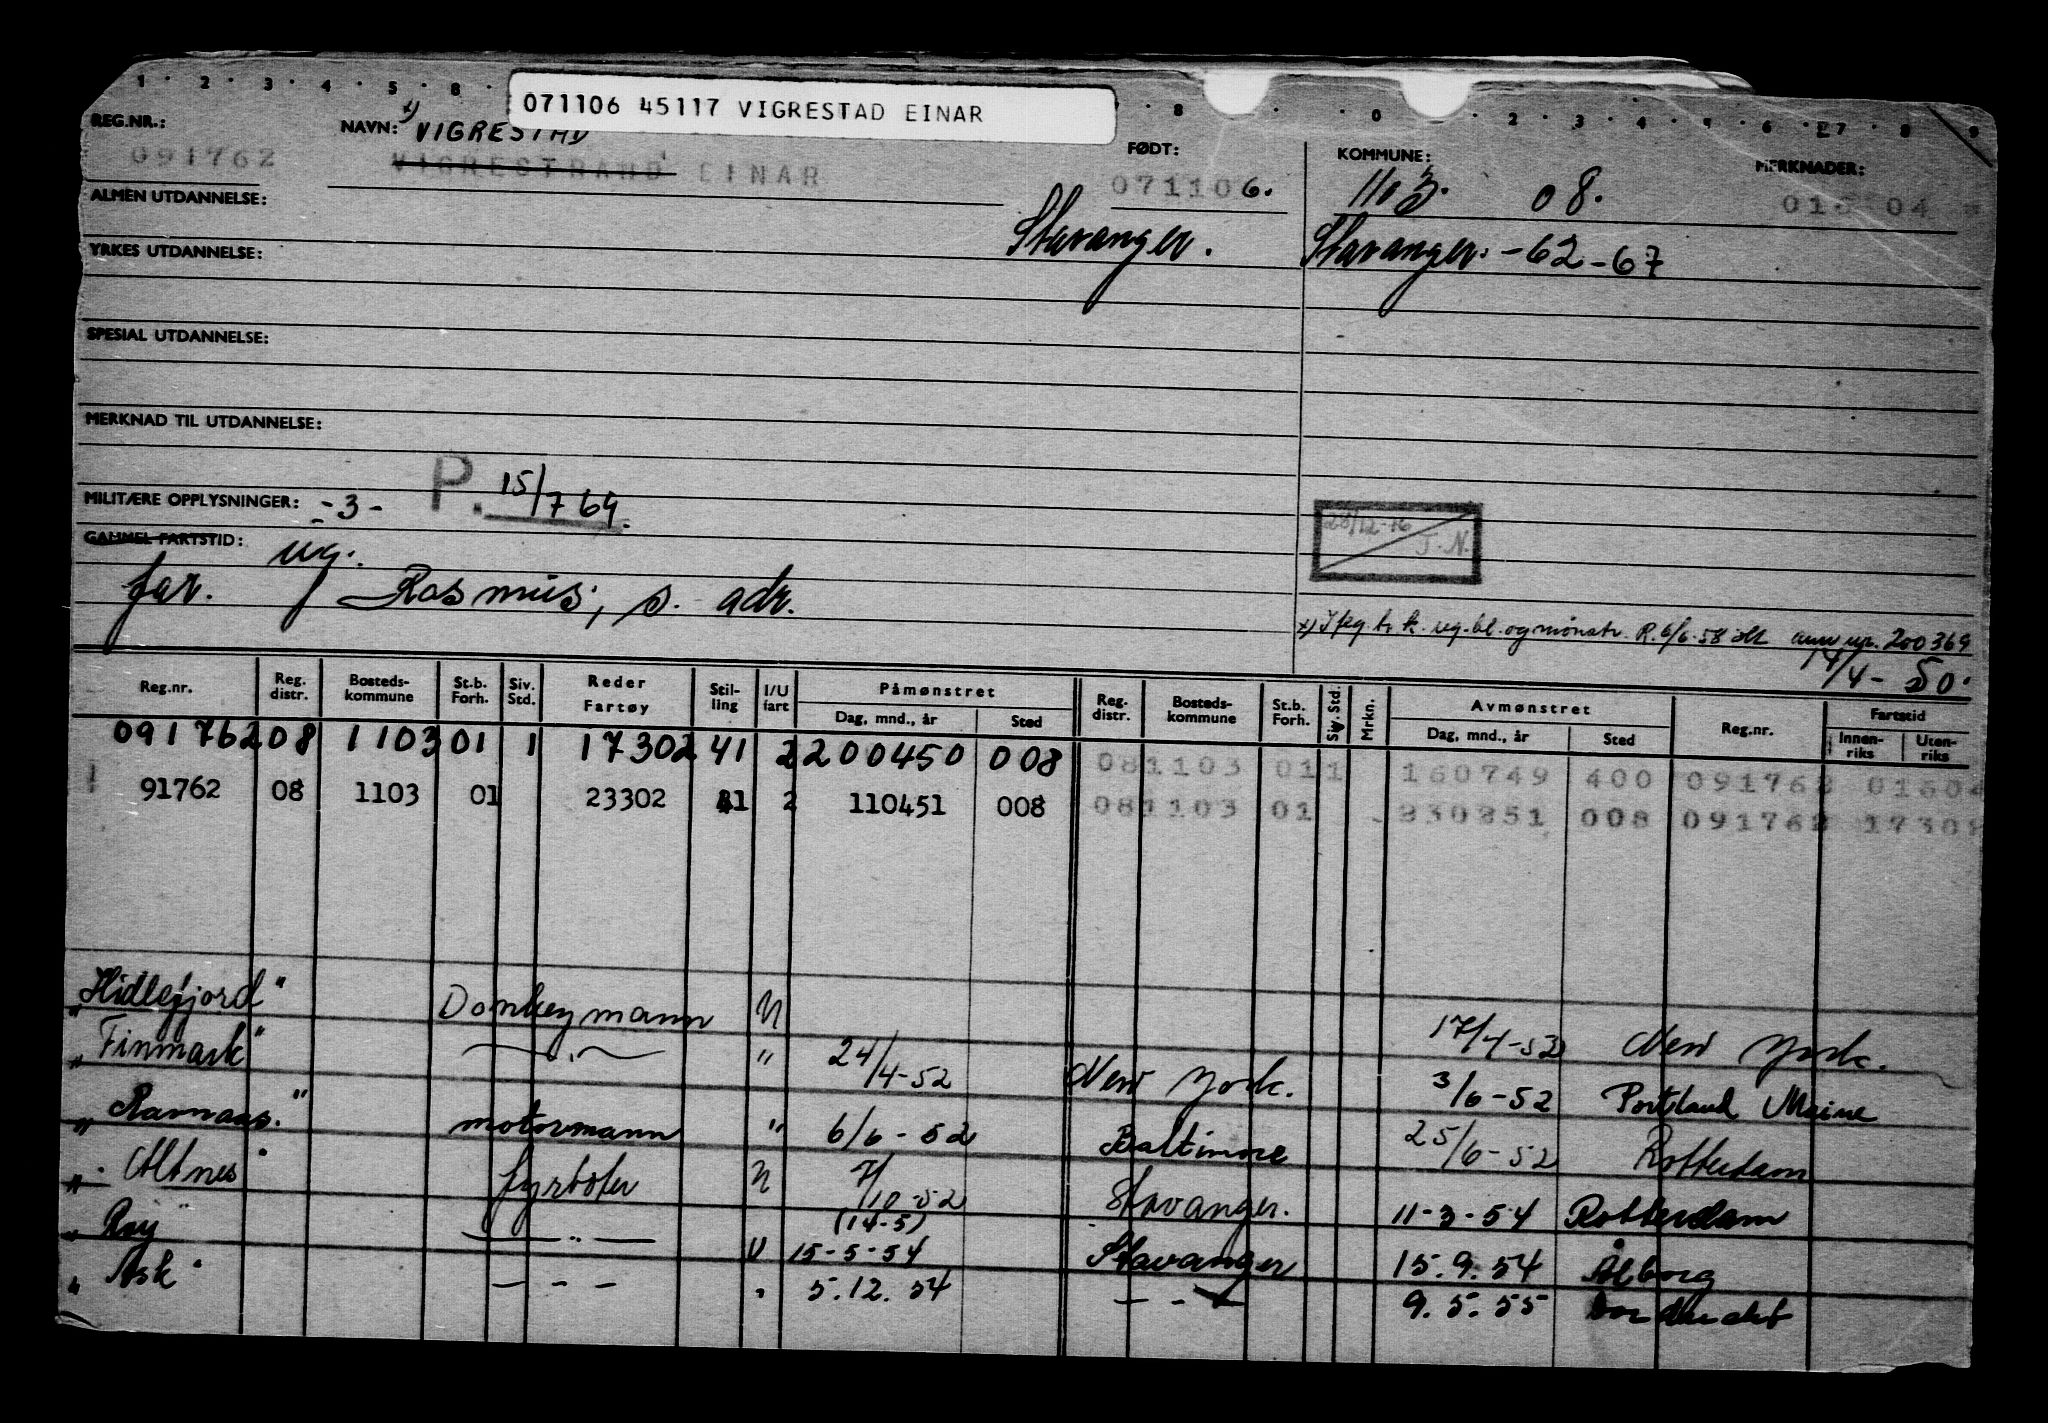 1 · 2 · 3 · 4 · 5 · 8 · 8 · · 0 · 2 · 3 · 4 · 6 · 7 · 8 · 9
071106 45117 VIGRESTAD EINAR
REG.NR.: NAVN: x) VIGRESTAD FØDT: KOMMUNE: MERKNADER:
091762 VIGRESTRAND EINAR 071106. 1103. 08. 04
ALMEN UTDANNELSE:
Stavanger. Stavanger. -62-67
YRKES UTDANNELSE:
SPESIAL UTDANNELSE:
MERKNAD TIL UTDANNELSE:
MILITÆRE OPPLYSNINGER: -3- P. 15/7 69.
28/12-76 T.N.
GAMMEL FARTSTID: ug.
far. Rasmus, s. adr.
x) og mønstr. R. 6/6-58 200369
14/4-50.
Reg.nr. Reg. distr. Bosteds-kommune St.b. Forh. Siv. Std. Reder Fartøy Stil-ling I/U fart Påmønstret Dag, mnd., år Sted Reg. distr. Bosteds-kommune St.b. Forh. Siv. Std. Mrkn. Avmønstret Dag, mnd., år Sted Reg.nr. Fartstid Innen-riks Uten-riks
091762 08 1103 01 1 17302 41 2 200450 008 08 1103 01 1 160749 400 091762 01604
91762 08 1103 01 23302 41 2 110451 008 08 1103 01 230851 008 091762
"Hidlefjord" Donkeymann U 17/4-52 New York.
"Finmark" — " — " 24/4-52 New York. 3/6-52 Portland Maine
"Ravnaas." motormann " 6/6-52 Baltimore 25/6-52 Rotterdam
"Altnes" fyrbøter U 7/10-52 Stavanger. 11-3-54 Rotterdam
(14-5)
"Roy" — " — U 15-5-54 Stavanger 15.9.54 Ålborg
"Ask" — - — " 5.12.54 — - — 9.5.55